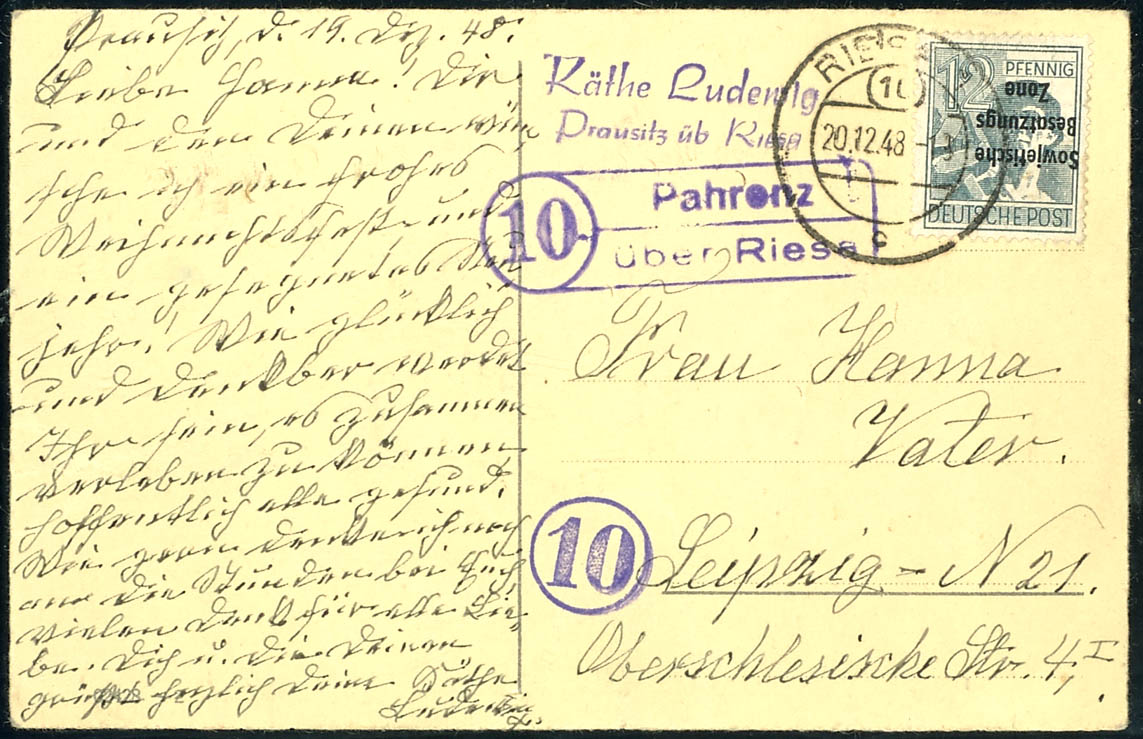 Prausitz, d. 19. Dez. 48.
Liebe Hanna! Dir
und den Deinen wün
sche ich ein frohes
Weihnachtsfest und
ein gesegnetes Neu
jahr! Wie glücklich
und dankbar werdet
Ihr sein, es zusammen
verleben zu können
hoffentlich alle gesund.
Wie gern denke ich noch
an die Stunden bei Euch
vielen Dank für alle Lie-
be. Dich u. die Deinen
grüßt herzlich Deine Käthe
Ludewig.
Käthe Ludewig
Prausitz üb Riesa
10
Pahrenz
über Riesa
RIESA
20.12.48
c
12 PFENNIG
Sowjetische
Besatzungs
Zone
DEUTSCHE POST
Frau Hanna
Vater.
10
Leipzig - N 21.
Oberschlesische Str. 4, I